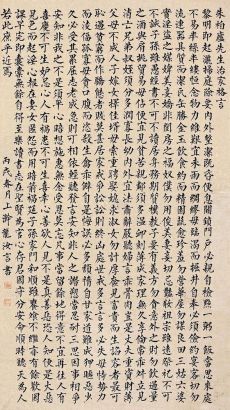 朱柏廬先生治家格言
黎明即起灑掃庭除要內外整潔既昏便息關鎖門戶必親自檢點一粥一飯當思來處
不易半絲半縷恆念物力維艱宜未雨而綢繆毋臨渴而掘井自奉必須儉約宴客切勿
流連器具質而潔瓦缶勝金玉飲食約而精園蔬愈珍饈勿營華屋勿謀良田三姑六婆
實淫盜之媒婢美妾嬌非閨房之福僮僕勿用俊美妻妾切忌豔妝祖宗雖遠祭祀不可
不誠子孫雖愚經書不可不讀居身務期質樸教子要有義方勿貪意外之財勿飲過量
之酒與肩挑貿易毋佔便宜見貧苦親鄰須加溫恤刻薄成家理無久享倫常乖舛立見
消亡兄弟叔姪須分多潤寡長幼內外宜法肅辭嚴聽婦言乖骨肉豈是丈夫重資財薄
父母不成人子嫁女擇佳婿毋索重聘娶媳求淑女勿計厚奩見富貴而生諂容者最可
恥遇貧窮而作驕態者賤莫甚居家戒爭訟訟則終凶處世戒多言言多必失毋恃勢力
而凌逼孤寡毋貪口腹而恣殺生禽乖僻自是悔誤必多頹惰自甘家道難成狎暱惡少
久必受其累屈志老成急則可相依輕聽發言安知非人之譖愬當忍耐三思因事相爭
安知非我之不是須平心暗想施惠無念受恩莫忘凡事當留餘地得意不宜再往人有
喜慶不可生妒忌心人有禍患不可生喜幸心善欲人見不是真善惡恐人知便是大惡
見色而起淫心報在妻女匿怨而用暗箭禍延子孫家門和順雖饔飧不繼亦有餘歡國
課早完即囊橐無餘自得至樂讀書志在聖賢為官心存君國守分安命順時聽天為人
若此庶乎近焉
丙戌春月上澣龍汝言書